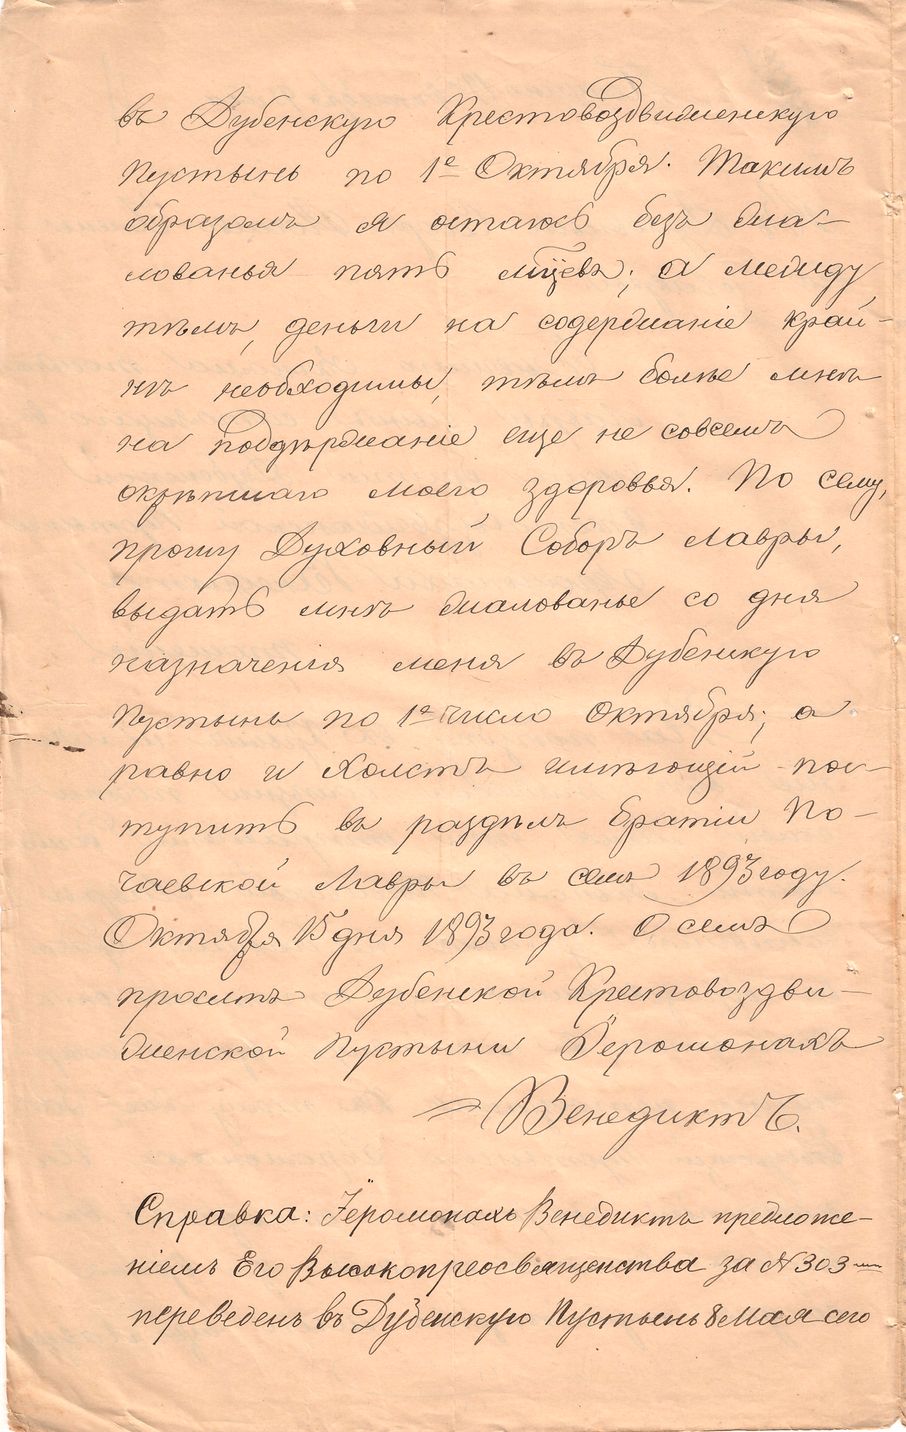 въ Дубенскую Крестовоздвиженскую
Пустынь по 1е Октября. Такимъ
образомъ я остаюсь безъ жа-
лованья пять мцевъ; а между
тѣмъ, деньги на содержаніе край-
нѣ необходимы, тѣмъ болѣе мнѣ
на поддержаніе еще не совсемъ
окрѣпшаго моего здоровья. По сему,
прошу Духовный Соборъ Лавры,
выдать мнѣ жалованье со дня
назначенія меня въ Дубенскую
Пустынь по 1е число Октября; а
равно и холстъ имѣющій пос-
тупить въ раздѣлъ братіи По-
чаевской Лавры въ семъ 1893 году.
Октября 15 дня 1893 года. О семъ
проситъ Дубенской Крестовоздви-
женской Пустыни Іеромонахъ
Венедиктъ.
Справка: Іеромонахъ Венедиктъ предложе-
ніемъ Его Высокопреосвященства за № 303
переведенъ въ Дубенскую Пустынь 8 Мая сего